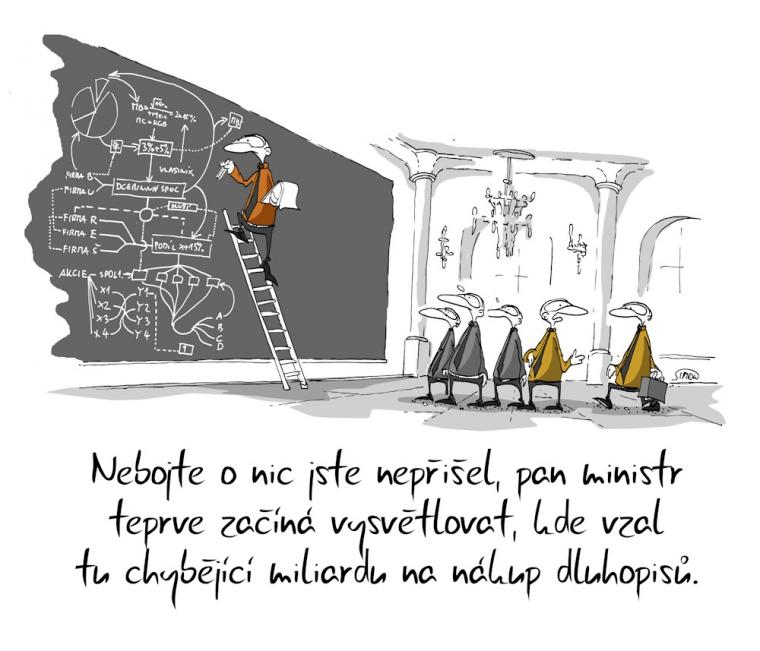 3%+5%
VLASTNÍK
FIRMA B
FIRMA U
DCEŘINNÁ SPOL
FIRMA R
FIRMA E
FIRMA Š
PODÍL X+15%
AKCIE SPOL1.
X1 Y1
X2 Y2
X3 Y3
X4 Y4
A
B
C
D
SIMON
Nebojte o nic jste nepřišel, pan ministr
teprve začíná vysvětlovat, kde vzal
tu chybějící miliardu na nákup dluhopisů.